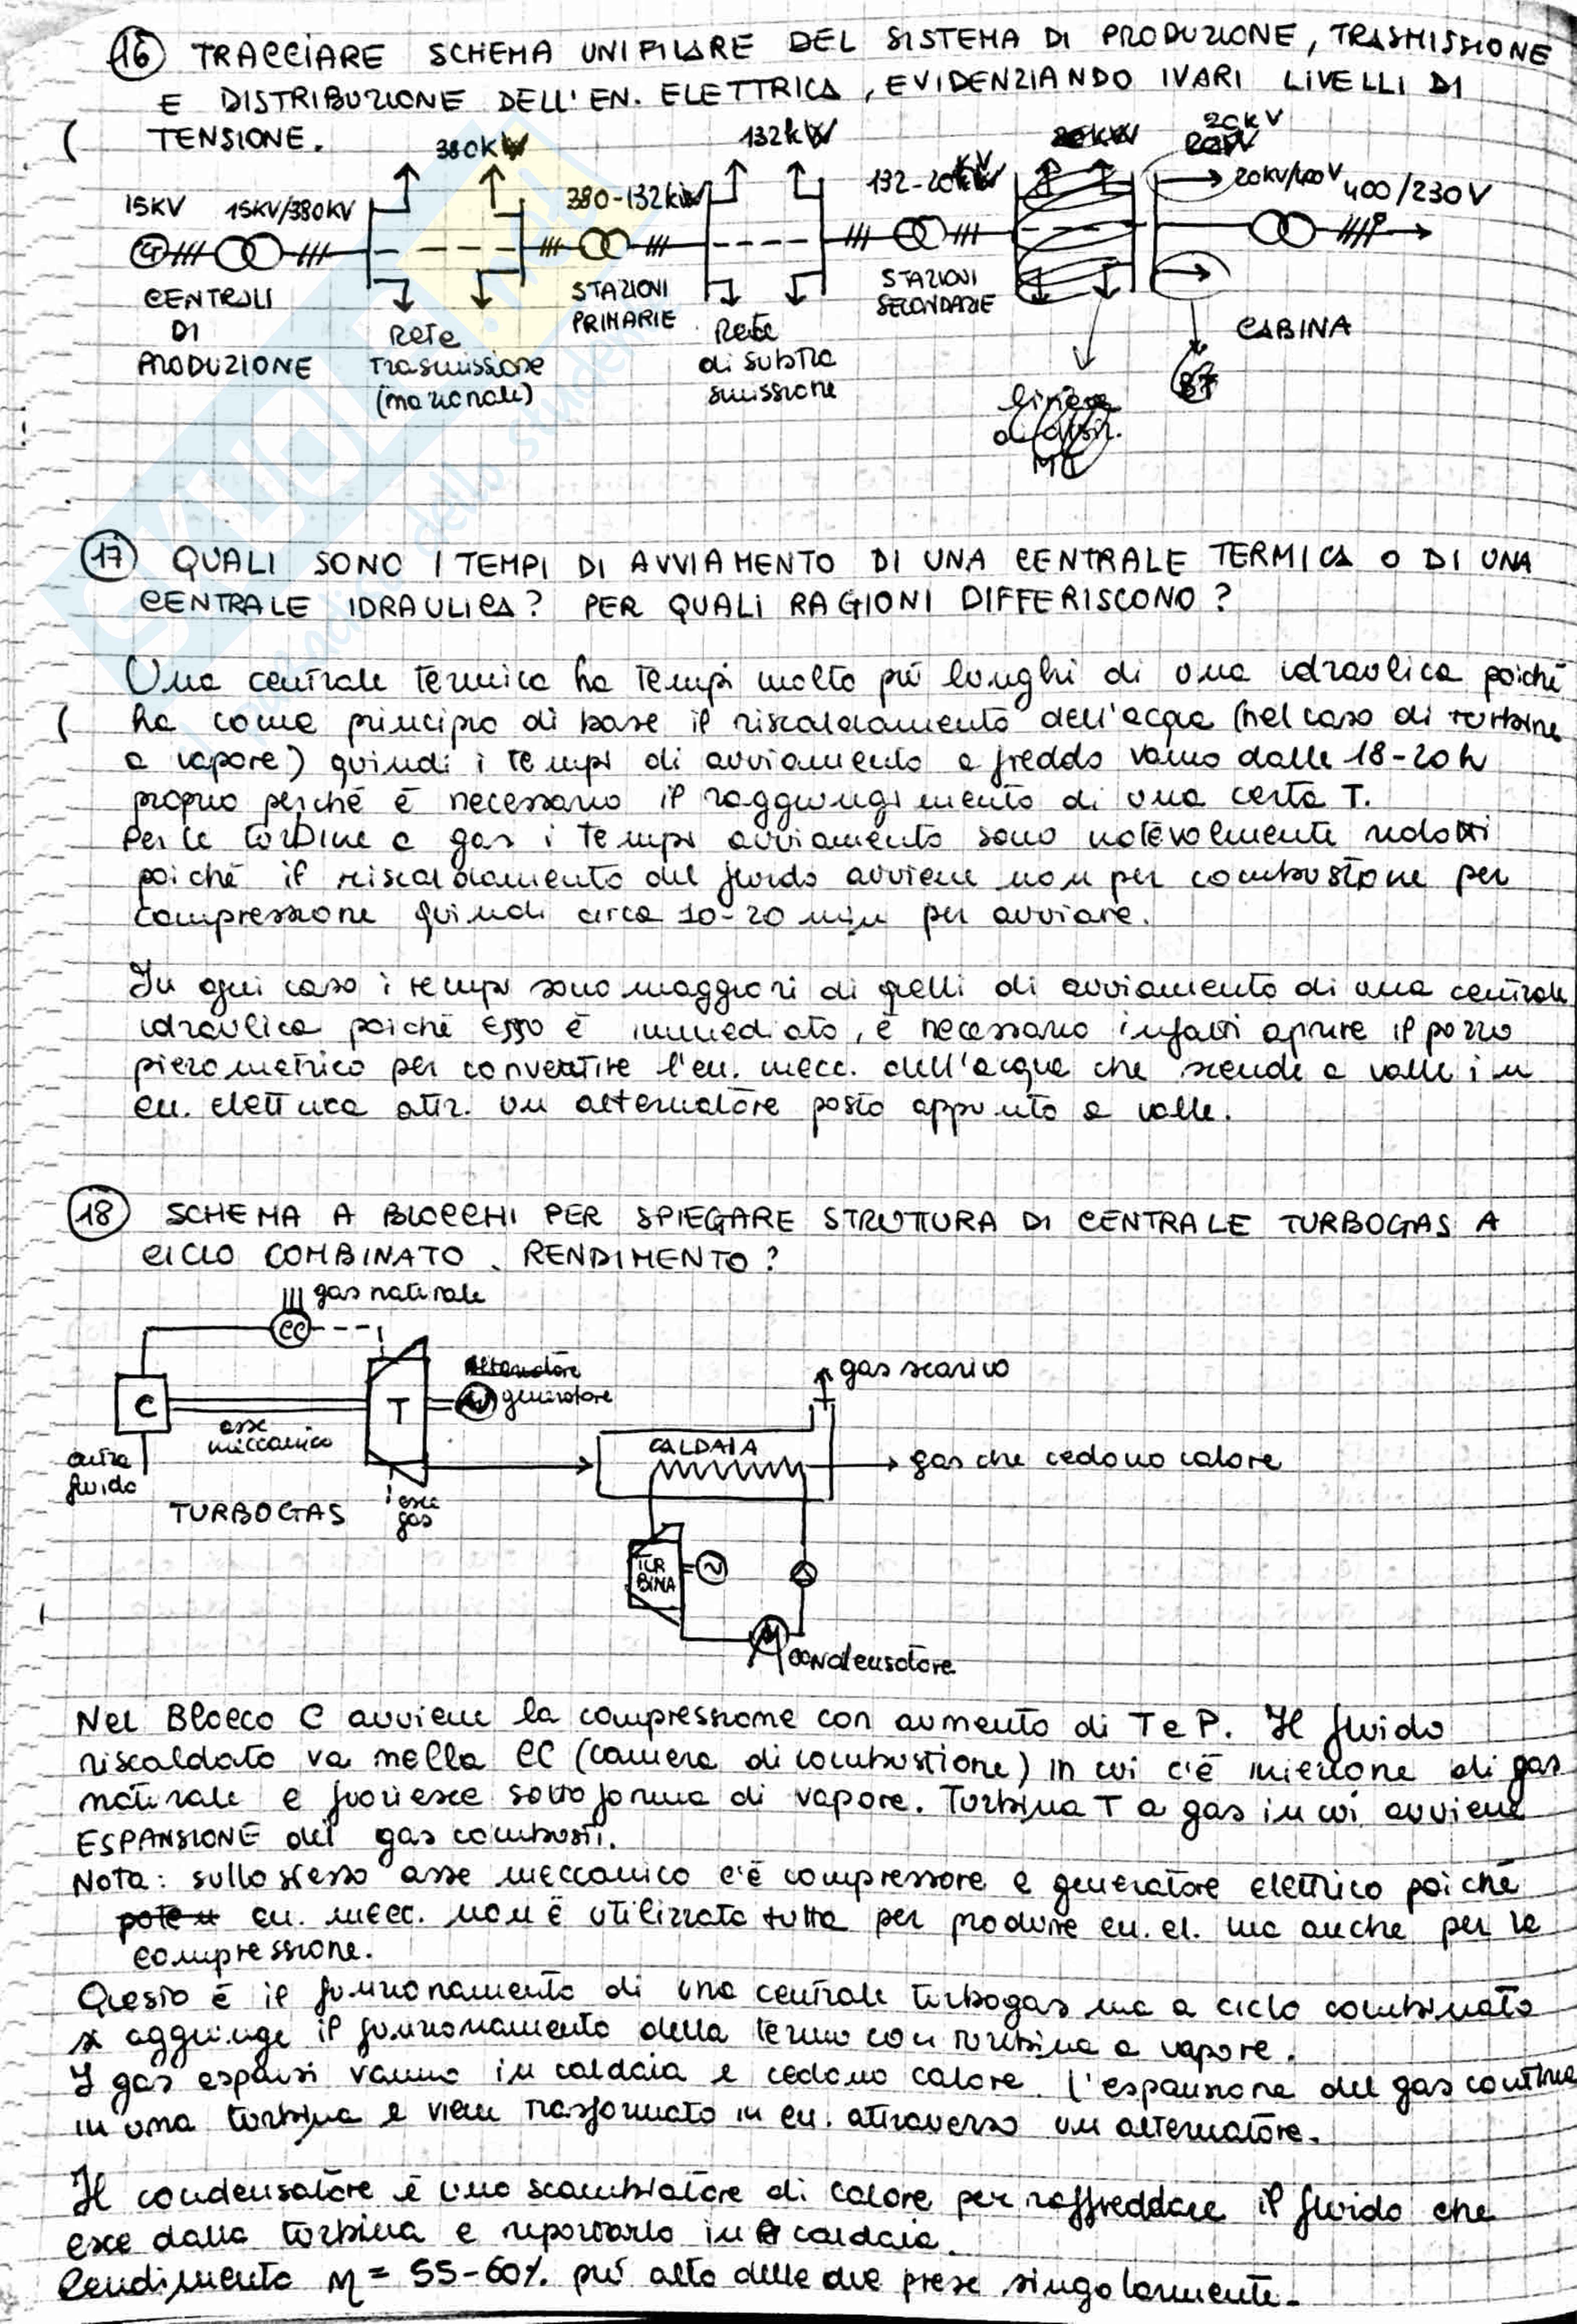 16 TRACCIARE SCHEMA UNIFILARE DEL SISTEMA DI PRODUZIONE, TRASMISSIONE
E DISTRIBUZIONE DELL'EN. ELETTRICA, EVIDENZIANDO I VARI LIVELLI DI
TENSIONE.
380kV 132kV 20kV
15KV 15KV/380KV 380-132kV 132-20kV 20KV/400V 400/230V
G
CENTRALI DI PRODUZIONE
Rete trasmissione (nazionale)
STAZIONI PRIMARIE
Rete di subtrasmissione
STAZIONI SECONDARIE
linea di distr. MT
BT
CABINA
17 QUALI SONO I TEMPI DI AVVIAMENTO DI UNA CENTRALE TERMICA O DI UNA
CENTRALE IDRAULICA? PER QUALI RAGIONI DIFFERISCONO?
Una centrale termica ha tempi molto più lunghi di una idraulica poiché
ha come principio di base il riscaldamento dell'acqua (nel caso di turbine
a vapore) quindi i tempi di avviamento a freddo vanno dalle 18-20h
proprio perché è necessario il raggiungimento di una certa T.
Per le turbine a gas i tempi avviamento sono notevolmente ridotti
poiché il riscaldamento del fluido avviene non per combustione per
compressione quindi circa 10-20 min per avviare.
In ogni caso i tempi sono maggiori di quelli di avviamento di una centrale
idraulica poiché esso è immediato, è necessario infatti aprire il pozzo
piezometrico per convertire l'en. mecc. dell'acqua che scende a valle in
en. elettrica attr. un alternatore posto appunto a valle.
18 SCHEMA A BLOCCHI PER SPIEGARE STRUTTURA DI CENTRALE TURBOGAS A
CICLO COMBINATO. RENDIMENTO?
gas naturale
CC
C
asse meccanico
T
generatore
entra fluido
TURBOGAS
esce gas
gas scarico
CALDAIA
gas che cedono calore
TURBINA
condensatore
Nel Blocco C avviene la compressione con aumento di T e P. Il fluido
riscaldato va nella CC (camera di combustione) in cui c'è iniezione di gas
naturale e fuoriesce sotto forma di vapore. Turbina T a gas in cui avviene
ESPANSIONE dei gas combusti.
Nota: sullo stesso asse meccanico c'è compressore e generatore elettrico poiché
en. mecc. non è utilizzata tutta per produrre en. el. ma anche per la
compressione.
Questo è il funzionamento di una centrale turbogas ma a ciclo combinato
si aggiunge il funzionamento della termo con turbina a vapore.
I gas espansi vanno in caldaia e cedono calore. L'espansione del gas continua
in una turbina e viene trasformato in en. attraverso un alternatore.
Il condensatore è uno scambiatore di calore per raffreddare il fluido che
esce dalla turbina e riportarlo in caldaia.
Rendimento η = 55-60% più alto delle due prese singolarmente.